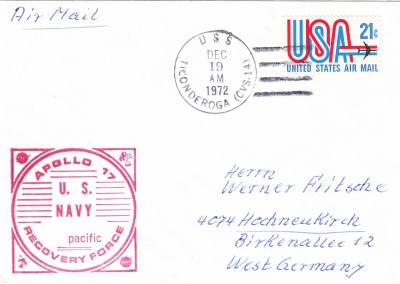 Air Mail
USS
DEC
19
AM
1972
TICONDEROGA (CVS-14)
USA 21c
UNITED STATES AIR MAIL
APOLLO 17
U. S.
NAVY
pacific
RECOVERY FORCE
Herrn
Werner Fritsche
4074 Hochneukirch
Birkenallee 12
West Germany